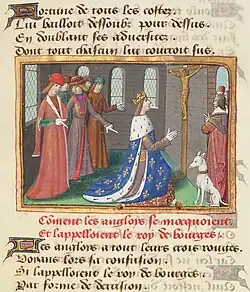 Fortune de tous les costez
Lui bailloit dessoubz pour dessus.
En doublant ses adversitez
Dont tout chascun lui couroit sus.
Cõment les anglois se mocquoient
Et l'appelloient le roy de bourges
Les anglois a tout leurs croix rouges.
Voyans lors sa confusion.
Si l'appelloient le roy de bourges
Par forme de derision